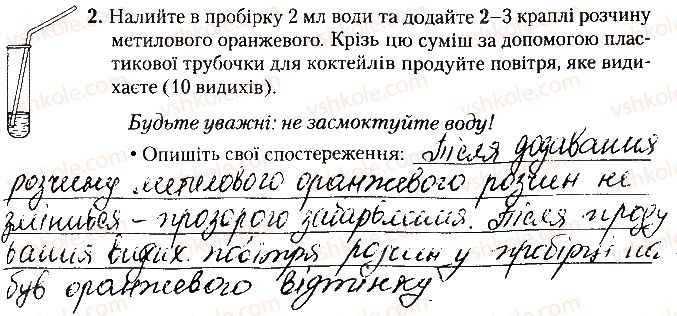 2. Налийте в пробірку 2 мл води та додайте 2–3 краплі розчину
метилового оранжевого. Крізь цю суміш за допомогою плас-
тикової трубочки для коктейлів продуйте повітря, яке види-
хаєте (10 видихів).
Будьте уважні: не засмоктуйте воду!
• Опишіть свої спостереження: Після додавання
розчину метилового оранжевого розчин не
змінився – прозорого забарвлення. Після проду
вання видих повітря розчин у пробірці на
був оранжевого відтінку
vshkole.com